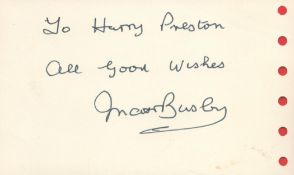 To Harry Preston
All Good Wishes
Matt Busby